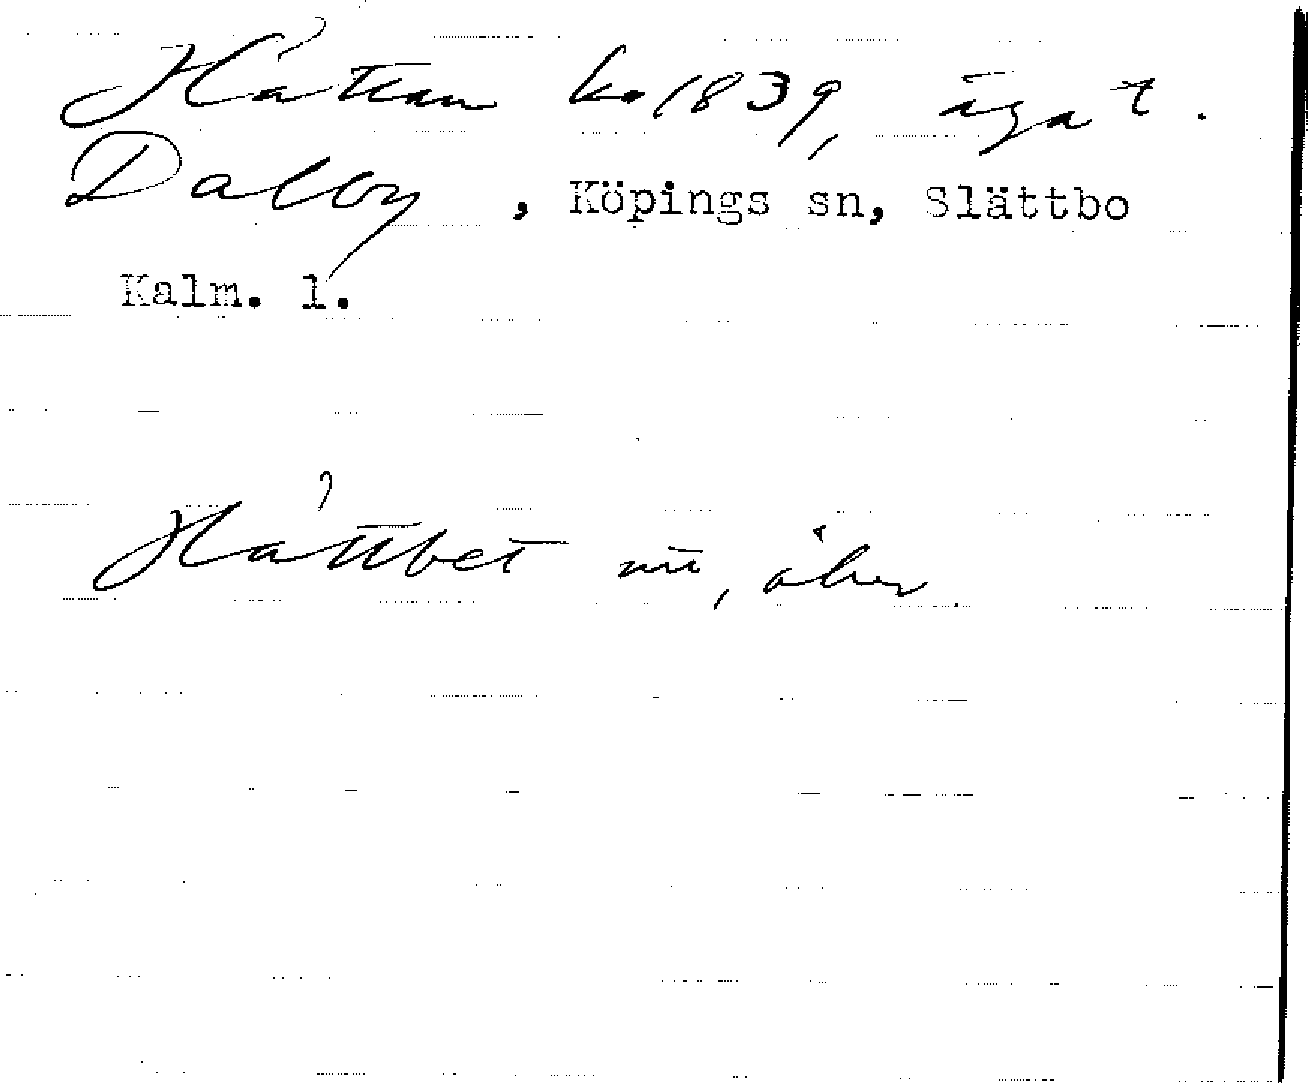 Håttan ko 1839, ägat.
Dalby, Köpings sn, Slättbo
Kalm. l.
Håttbet nu, åker